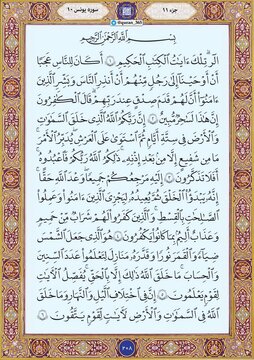 جزء ۱۱
سوره یونس ۱۰
@quran_365
بِسْمِ اللَّهِ الرَّحْمَٰنِ الرَّحِيمِ
الٓر ۚ تِلْكَ ءَايَٰتُ الْكِتَٰبِ الْحَكِيمِ ۝١ أَكَانَ لِلنَّاسِ عَجَبًا
أَنْ أَوْحَيْنَآ إِلَىٰ رَجُلٍ مِّنْهُمْ أَنْ أَنذِرِ النَّاسَ وَبَشِّرِ الَّذِينَ
ءَامَنُوٓا۟ أَنَّ لَهُمْ قَدَمَ صِدْقٍ عِندَ رَبِّهِمْ ۗ قَالَ الْكَٰفِرُونَ
إِنَّ هَٰذَا لَسَٰحِرٌ مُّبِينٌ ۝٢ إِنَّ رَبَّكُمُ اللَّهُ الَّذِى خَلَقَ السَّمَٰوَٰتِ
وَالْأَرْضَ فِى سِتَّةِ أَيَّامٍ ثُمَّ اسْتَوَىٰ عَلَى الْعَرْشِ ۖ يُدَبِّرُ الْأَمْرَ ۖ
مَا مِن شَفِيعٍ إِلَّا مِنۢ بَعْدِ إِذْنِهِۦ ۚ ذَٰلِكُمُ اللَّهُ رَبُّكُمْ فَاعْبُدُوهُ ۚ
أَفَلَا تَذَكَّرُونَ ۝٣ إِلَيْهِ مَرْجِعُكُمْ جَمِيعًا ۖ وَعْدَ اللَّهِ حَقًّا ۚ
إِنَّهُۥ يَبْدَؤُا۟ الْخَلْقَ ثُمَّ يُعِيدُهُۥ لِيَجْزِىَ الَّذِينَ ءَامَنُوا۟ وَعَمِلُوا۟
الصَّٰلِحَٰتِ بِالْقِسْطِ ۚ وَالَّذِينَ كَفَرُوا۟ لَهُمْ شَرَابٌ مِّنْ حَمِيمٍ
وَعَذَابٌ أَلِيمٌۢ بِمَا كَانُوا۟ يَكْفُرُونَ ۝٤ هُوَ الَّذِى جَعَلَ الشَّمْسَ
ضِيَآءً وَالْقَمَرَ نُورًا وَقَدَّرَهُۥ مَنَازِلَ لِتَعْلَمُوا۟ عَدَدَ السِّنِينَ
وَالْحِسَابَ ۚ مَا خَلَقَ اللَّهُ ذَٰلِكَ إِلَّا بِالْحَقِّ ۚ يُفَصِّلُ الْءَايَٰتِ
لِقَوْمٍ يَعْلَمُونَ ۝٥ إِنَّ فِى اخْتِلَٰفِ الَّيْلِ وَالنَّهَارِ وَمَا خَلَقَ
اللَّهُ فِى السَّمَٰوَٰتِ وَالْأَرْضِ لَءَايَٰتٍ لِّقَوْمٍ يَتَّقُونَ ۝٦
۲۰۸